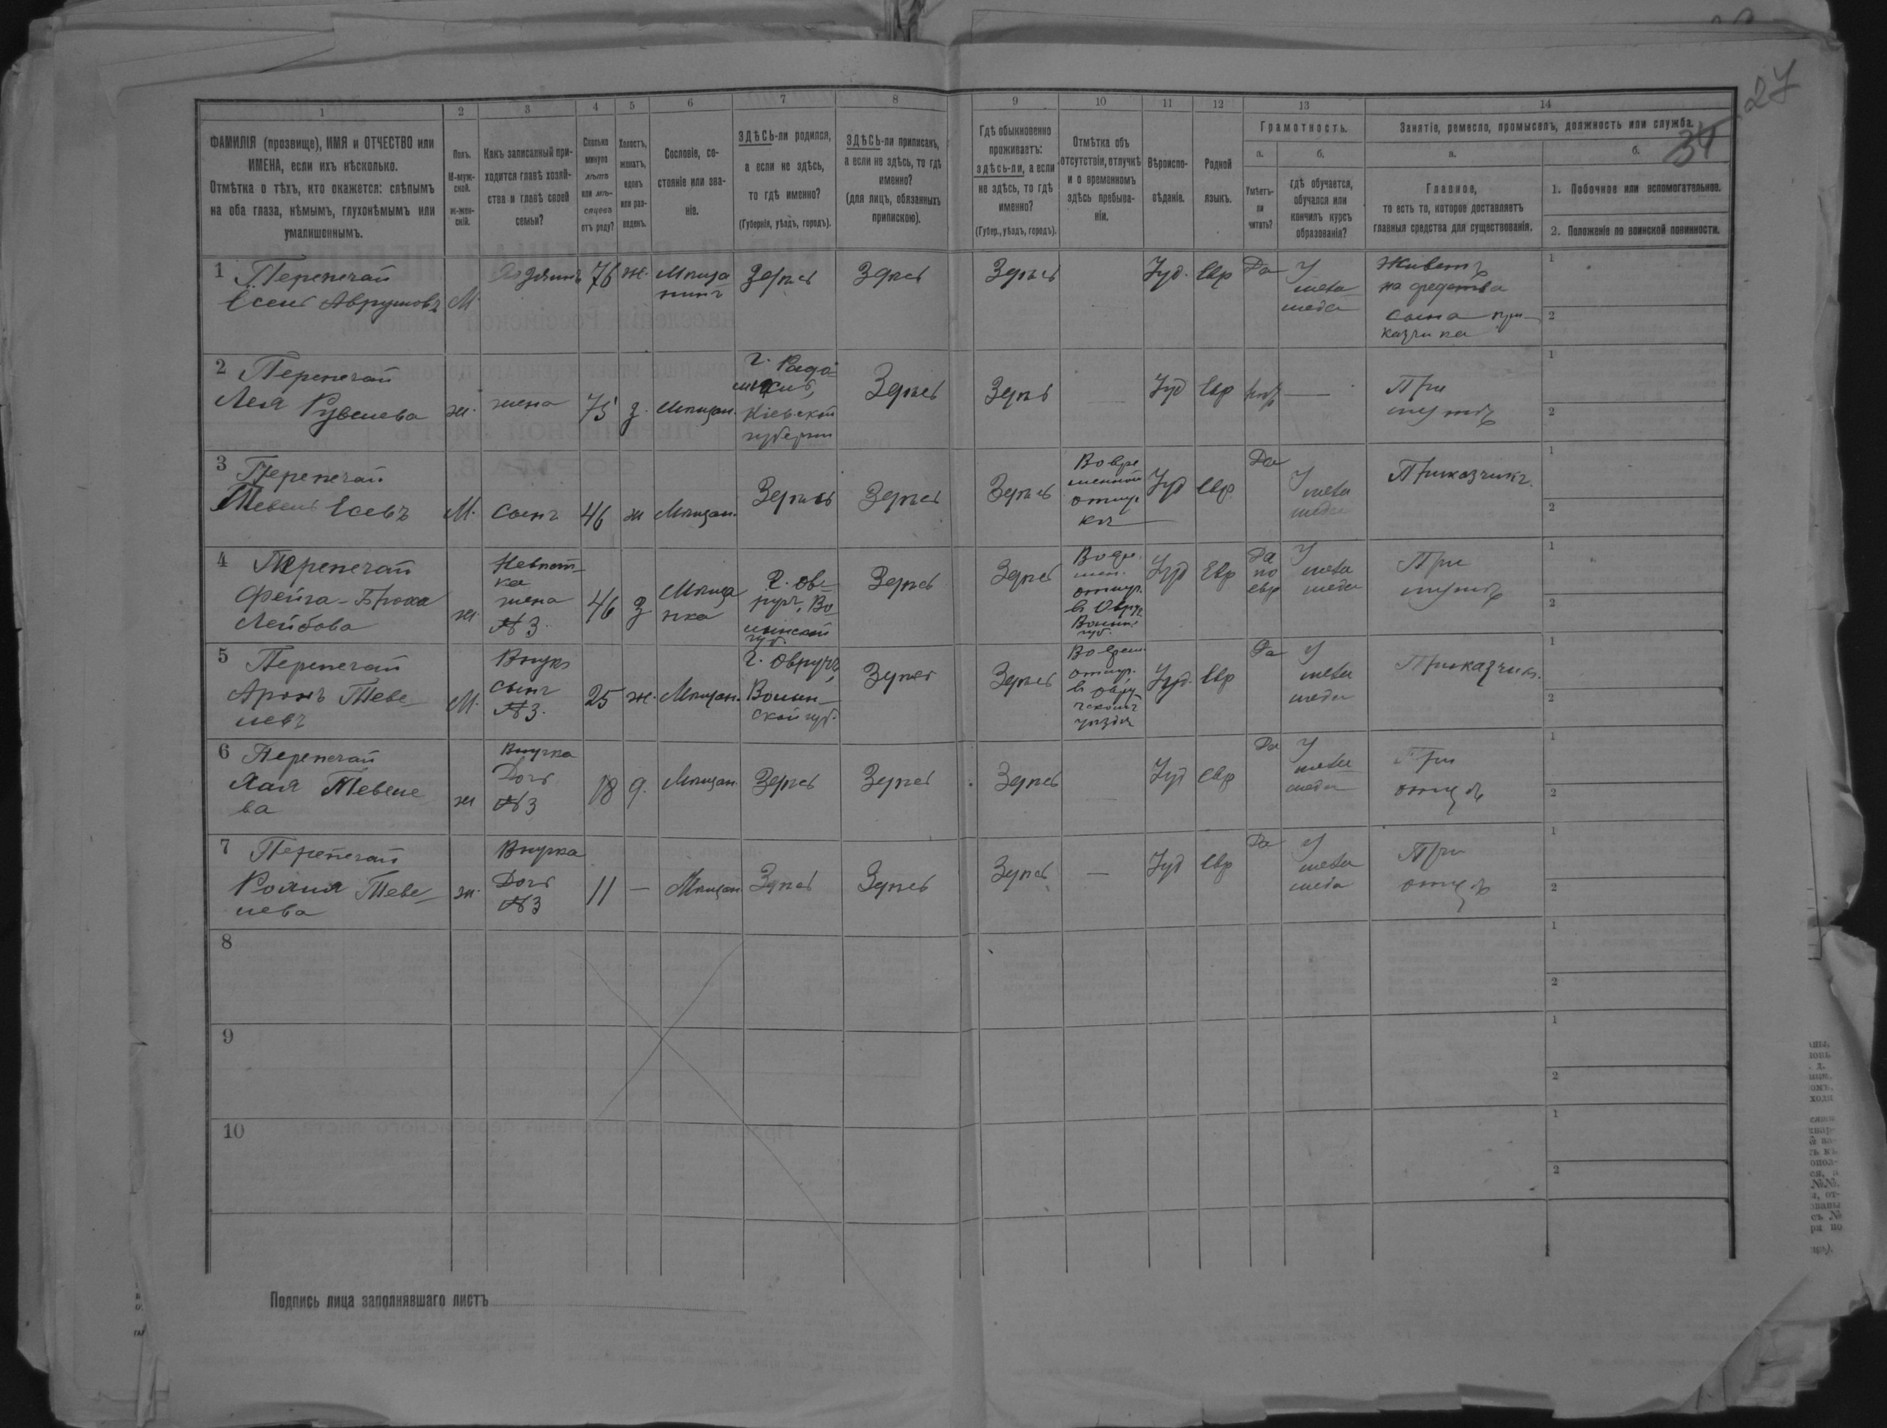 27
34
1
2
3
4
5
6
7
8
9
10
11
12
13
14
ФАМИЛІЯ (прозвище), ИМЯ и ОТЧЕСТВО или
ИМЕНА, если ихъ нѣсколько.
Отмѣтка о тѣхъ, кто окажется: слѣпымъ
на оба глаза, нѣмымъ, глухонѣмымъ или
умалишеннымъ.
Полъ.
М-муж-
ской.
ж-жен-
скій.
Какъ записанный при-
ходится главѣ хозяй-
ства и главѣ своей
семьи?
Сколько
минуло
лѣтъ
или мѣ-
сяцевъ
отъ роду?
Холостъ,
женатъ,
вдовъ
или раз-
веденъ.
Сословіе, со-
стояніе или зва-
ніе.
ЗДѢСЬ-ли родился,
а если не здѣсь,
то гдѣ именно?
(Губернія, уѣздъ, городъ).
ЗДѢСЬ-ли приписанъ,
а если не здѣсь, то гдѣ
именно?
(для лицъ, обязанныхъ
припискою).
Гдѣ обыкновенно
проживаетъ:
здѣсь-ли, а если
не здѣсь, то гдѣ
именно?
(Губер., уѣздъ, городъ).
Отмѣтка объ
отсутствіи, отлучкѣ
и о временномъ
здѣсь пребыва-
ніи.
Вѣроиспо-
вѣданіе.
Родной
языкъ.
Грамотность.
а.
Умѣетъ-
ли
читать?
б.
гдѣ обучается,
обучался или
кончилъ курсъ
образованія?
Занятіе, ремесло, промыселъ, должность или служба.
а.
Главное,
то есть то, которое доставляетъ
главныя средства для существованія.
б.
1. Побочное или вспомогательное.
2. Положеніе по воинской повинности.
1 Перепечай
Есель Аврумовъ
М.
Хозяинъ
76
ж.
Мѣща
нинъ
Здѣсь
Здѣсь
Здѣсь
Іуд.
Евр
Да
У
мела
меда
Живетъ
на средства
сына при-
казчика
1
2
2 Перепечай
Лея Рувелева
ж.
жена
75
з.
Мѣщан.
г. Радо
мысль,
Кіевской
губерніи
Здѣсь
Здѣсь
—
Іуд
Евр
нѣт
—
При
мужѣ
1
2
3 Перепечай
Тевель Есевъ
М.
Сынъ
46
ж
Мѣщан.
Здѣсь
Здѣсь
Здѣсь
Во вре
менной
отлуч
кѣ
Іуд
Евр
Да
У
мела
меда
Приказчикъ.
1
2
4 Перепечай
Фейга-Броха
Лейбова
ж.
Невѣст-
ка
жена
№3.
46
з
Мѣща
нка
г. Ов-
ручъ, Во
лынской
губ.
Здѣсь
Здѣсь
Во вре.
мен.
отлуч.
въ Овру.
Волын.
губ.
Іуд
Евр
Да
по
евр
У
мела
меда
При
мужѣ
1
2
5 Перепечай
Аронъ Теве-
левъ
М.
Внукъ
сынъ
№3.
25
ж.
Мѣщан.
г. Овручъ,
Волын-
ской губ.
Здѣсь
Здѣсь
Во врем.
отлуч.
въ Овру
ческомъ
уѣздѣ
Іуд.
Евр
Да
У
мела
меда
Приказчик.
1
2
6 Перепечай
Хая Тевеле
ва
ж
Внучка
Дочь
№3
18
д.
Мѣщан
Здѣсь
Здѣсь
Здѣсь
Іуд
Евр
Да
У
мела
меда
При
отцѣ
1
2
7 Перепечай
Теве-
лева
ж.
Внучка
Дочь
№3
11
—
Мѣщан
Здѣсь
Здѣсь
Здѣсь
—
Іуд
Евр
Да
У
мела
меда
При
отцѣ
1
2
8
1
2
9
1
2
10
1
2
Подпись лица заполнявшаго листъ